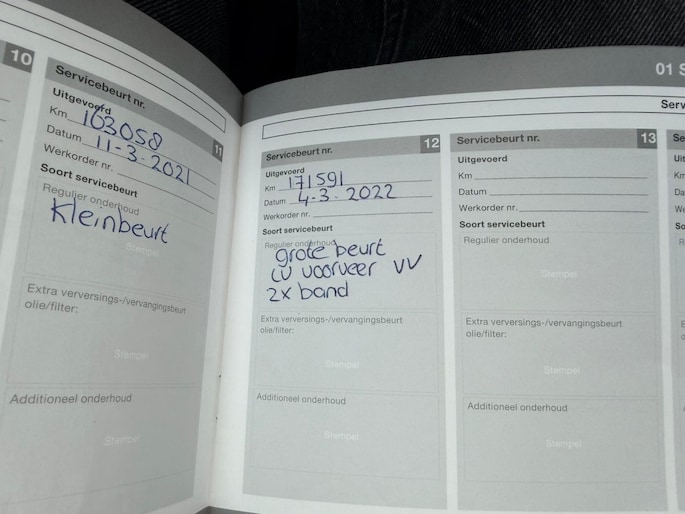 10
Servicebeurt nr. 11
Uitgevoerd
Km 163058
Datum 11-3-2021
Werkorder nr.
Soort servicebeurt
Regulier onderhoud
Kleinbeurt
Stempel
Extra verversings-/vervangingsbeurt
olie/filter:
Stempel
Additioneel onderhoud
Stempel
Servicebeurt nr. 12
Uitgevoerd
Km 171591
Datum 4-3-2022
Werkorder nr.
Soort servicebeurt
Regulier onderhoud
grote beurt
voorveer VV
2x band
Extra verversings-/vervangingsbeurt
olie/filter:
Stempel
Additioneel onderhoud
Stempel
01 S
Serv
Servicebeurt nr. 13
Uitgevoerd
Km
Datum
Werkorder nr.
Soort servicebeurt
Regulier onderhoud
Stempel
Extra verversings-/vervangingsbeurt
olie/filter:
Stempel
Additioneel onderhoud
Stempel
Se
Uit
Km
Da
We
So
Re
Ex
oli
Ad